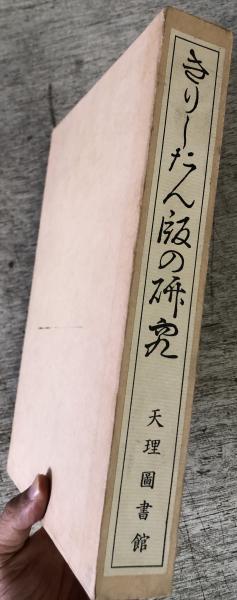 きりしたん版の研究
天理圖書館